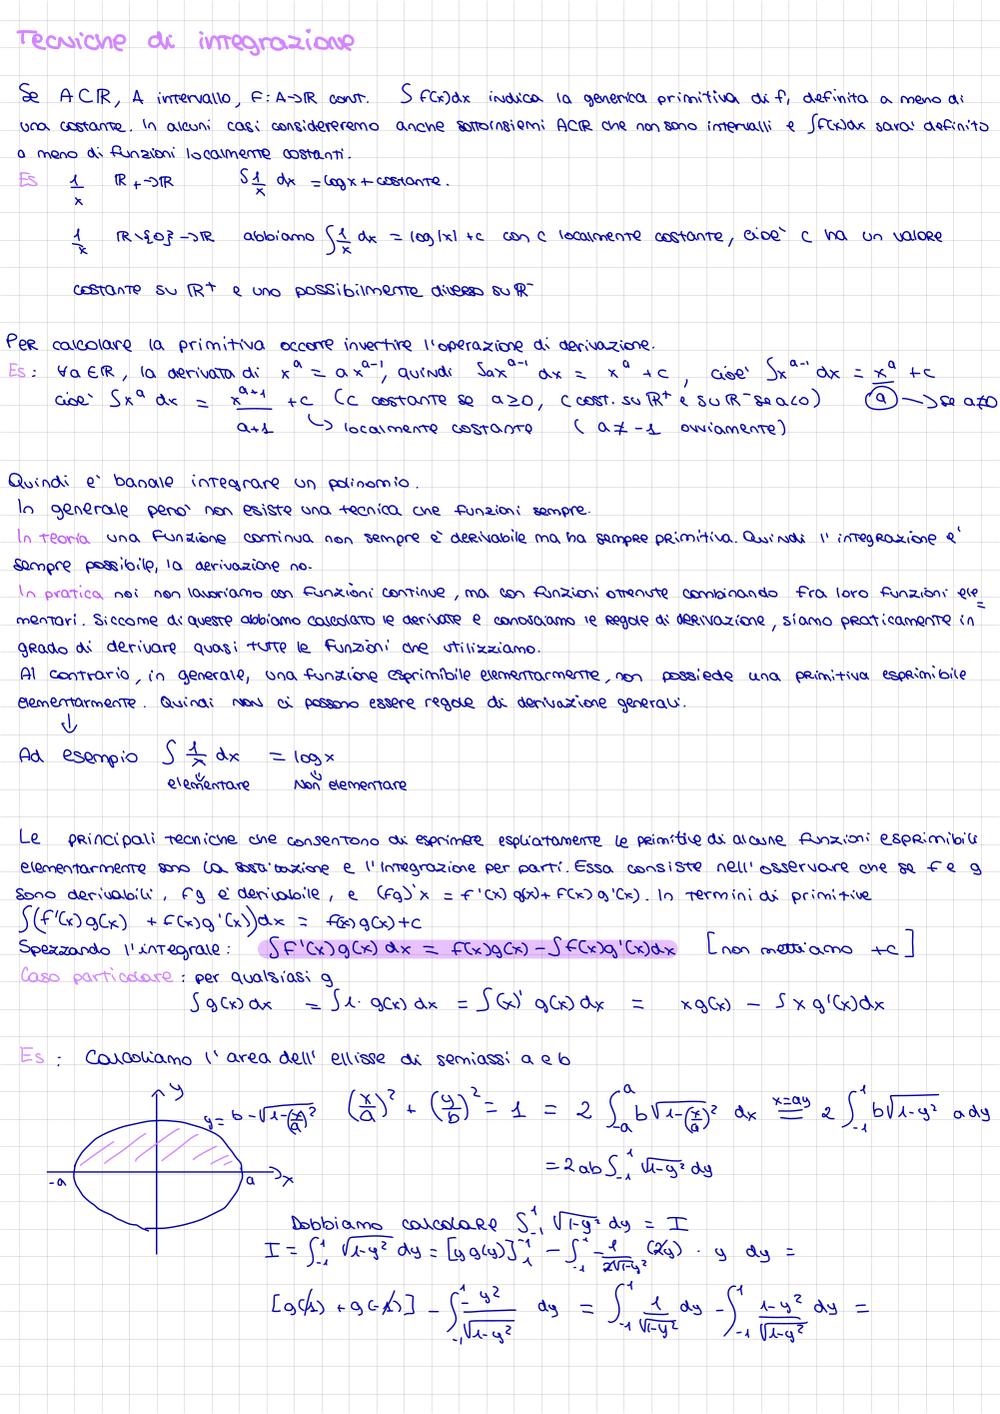 Tecniche di integrazione
Se A⊂ℝ, A intervallo, F: A→ℝ cont. ∫ f(x)dx indica la generica primitiva di f, definita a meno di
una costante. In alcuni casi considereremo anche sottoinsiemi A⊂ℝ che non sono intervalli e ∫f(x)dx sara' definito
a meno di funzioni localmente costanti.
Es 1/x ℝ₊→ℝ ∫1/x dx = log x + costante.
1/x ℝ\{0}→ℝ abbiamo ∫1/x dx = log|x| + c con c localmente costante, cioe' c ha un valore
costante su ℝ⁺ e uno possibilmente diverso su ℝ⁻
Per calcolare la primitiva occorre invertire l'operazione di derivazione.
Es: ∀a∈ℝ, la derivata di x^a = ax^(a-1), quindi ∫ax^(a-1) dx = x^a + c, cioe' ∫x^(a-1) dx = x^a/a + c → se a≠0
cioe' ∫x^a dx = x^(a+1)/(a+1) + c (c costante se a≥0, c cost. su ℝ⁺ e su ℝ⁻ se a<0)
↳ localmente costante (a≠-1 ovviamente)
Quindi e' banale integrare un polinomio.
In generale pero' non esiste una tecnica che funzioni sempre.
In teoria una funzione continua non sempre e' derivabile ma ha sempre primitiva. Quindi l'integrazione e'
sempre possibile, la derivazione no.
In pratica noi non lavoriamo con funzioni continue, ma con funzioni ottenute combinando fra loro funzioni ele=
mentari. Siccome di queste abbiamo calcolato le derivate e conosciamo le regole di derivazione, siamo praticamente in
grado di derivare quasi tutte le funzioni che utilizziamo.
Al contrario, in generale, una funzione esprimibile elementarmente, non possiede una primitiva esprimibile
elementarmente. Quindi non ci possono essere regole di derivazione generali.
↓
Ad esempio ∫ 1/x dx = log x
elementare Non elementare
Le principali tecniche che consentono di esprimere espliatamente le primitive di alcune funzioni esprimibili
elementarmente sono la sostituzione e l'integrazione per parti. Essa consiste nell'osservare che se f e g
sono derivabili, fg e' derivabile, e (fg)'x = f'(x) g(x) + f(x) g'(x). In termini di primitive
∫(f'(x)g(x) + f(x)g'(x))dx = f(x)g(x)+c
Spezzando l'integrale: ∫f'(x)g(x) dx = f(x)g(x) - ∫f(x)g'(x)dx [non mettiamo +c]
Caso particolare: per qualsiasi g
∫g(x)dx = ∫1· g(x) dx = ∫(x)' g(x) dx = xg(x) - ∫x g'(x)dx
Es: Calcoliamo l'area dell' ellisse di semiassi a e b
y
y= b-√(1-(x/a)²) (x/a)² + (y/b)² = 1 = 2 ∫_{-a}^{a} b√(1-(x/a)²) dx =^{x=ay} 2 ∫_{-1}^{1} b√(1-y²) a dy
-a a x
= 2ab ∫_{-1}^{1} √(1-y²) dy
Dobbiamo calcolare ∫_{-1}^{1} √(1-y²) dy = I
I = ∫_{-1}^{1} √(1-y²) dy = [y g(y)]_{-1}^{1} - ∫_{-1}^{1} -1/(2√(1-y²)) (2y) · y dy =
[g(1) + g(-1)] - ∫_{-1}^{1} -y²/√(1-y²) dy = ∫_{-1}^{1} 1/√(1-y²) dy - ∫_{-1}^{1} (1-y²)/√(1-y²) dy =